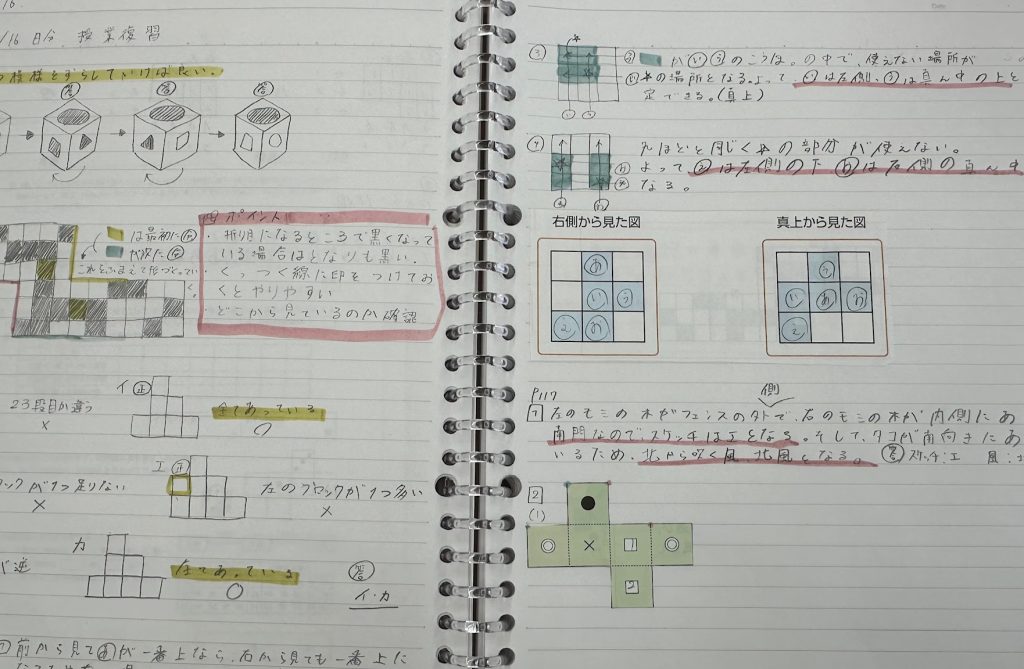 /16
/16 日分 授業復習
模様をずらしていけば良い。
答
答
答
ポイント
は最初に
が次に
これをふまえて
・折り目になるところで黒くなって
いる場合はとなりも黒い.
・くっつく線に印をつけてお
くとやりやすい
・どこから見ているのか確認
イ 正
23段目が違う
×
全てあっている
○
エ 正
ロックが1つ足りない
×
左のブロックが1つ多い
×
カ
が逆
全てあっている
○
答
イ・カ
前から見て あ が一番上なら、右から見ても一番上だ
③
が い う のこうほ。の中で、使えない場所が
の場所となる。よって、 い は左側、 う は真ん中の上と
定できる。(真上)
④
先ほどと同じく の部分が使えない。
よって、 え は左側の下 お は右側の真ん中
なる。
右側から見た図
あ
い う
え お
真上から見た図
う
い あ お
え
P117
側
1 左のモミの木がフェンスの外で、右のモミの木が内側にあ
南門なので、スケッチはエとなる。そして、タコが南向きにあ
いるため、北から吹く風、北風となる。 答 スケッチ:エ 風:北
2
(1)
●
◎ × 1 ◎
2